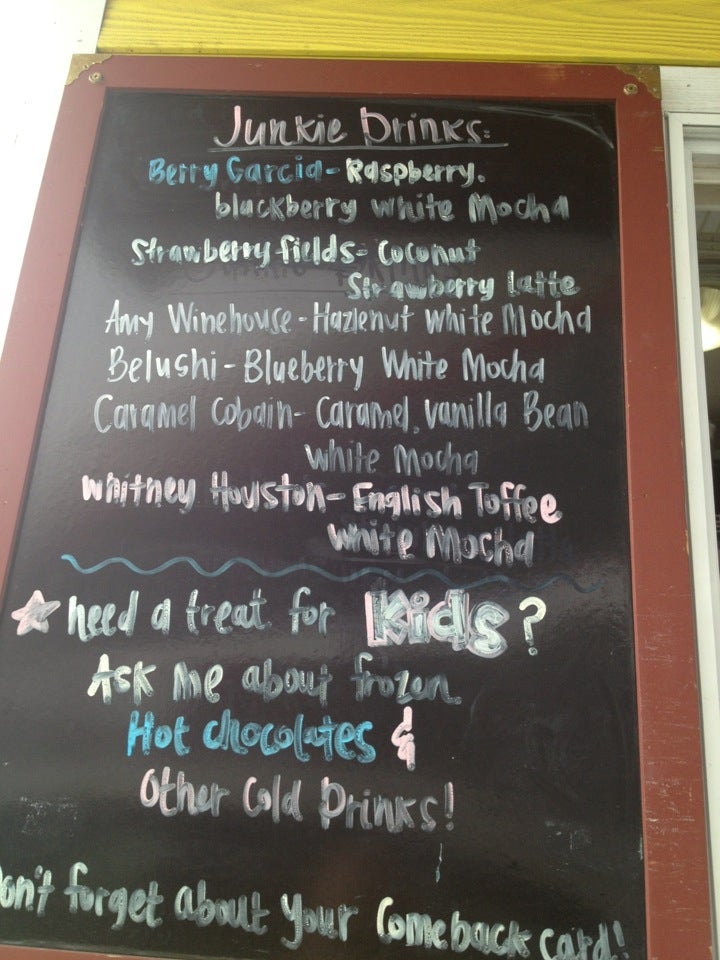 Junkie Drinks:
Berry Garcia - Raspberry,
blackberry white Mocha
Strawberry fields - Coconut
Strawberry latte
Amy Winehouse - Hazlenut white Mocha
Belushi - Blueberry White Mocha
Caramel Cobain - Caramel, vanilla Bean
white Mocha
Whitney Houston - English Toffee
white Mocha
need a treat for Kids?
Ask me about frozen
Hot chocolates &
Other Cold Drinks!
Don't forget about your Comeback card!